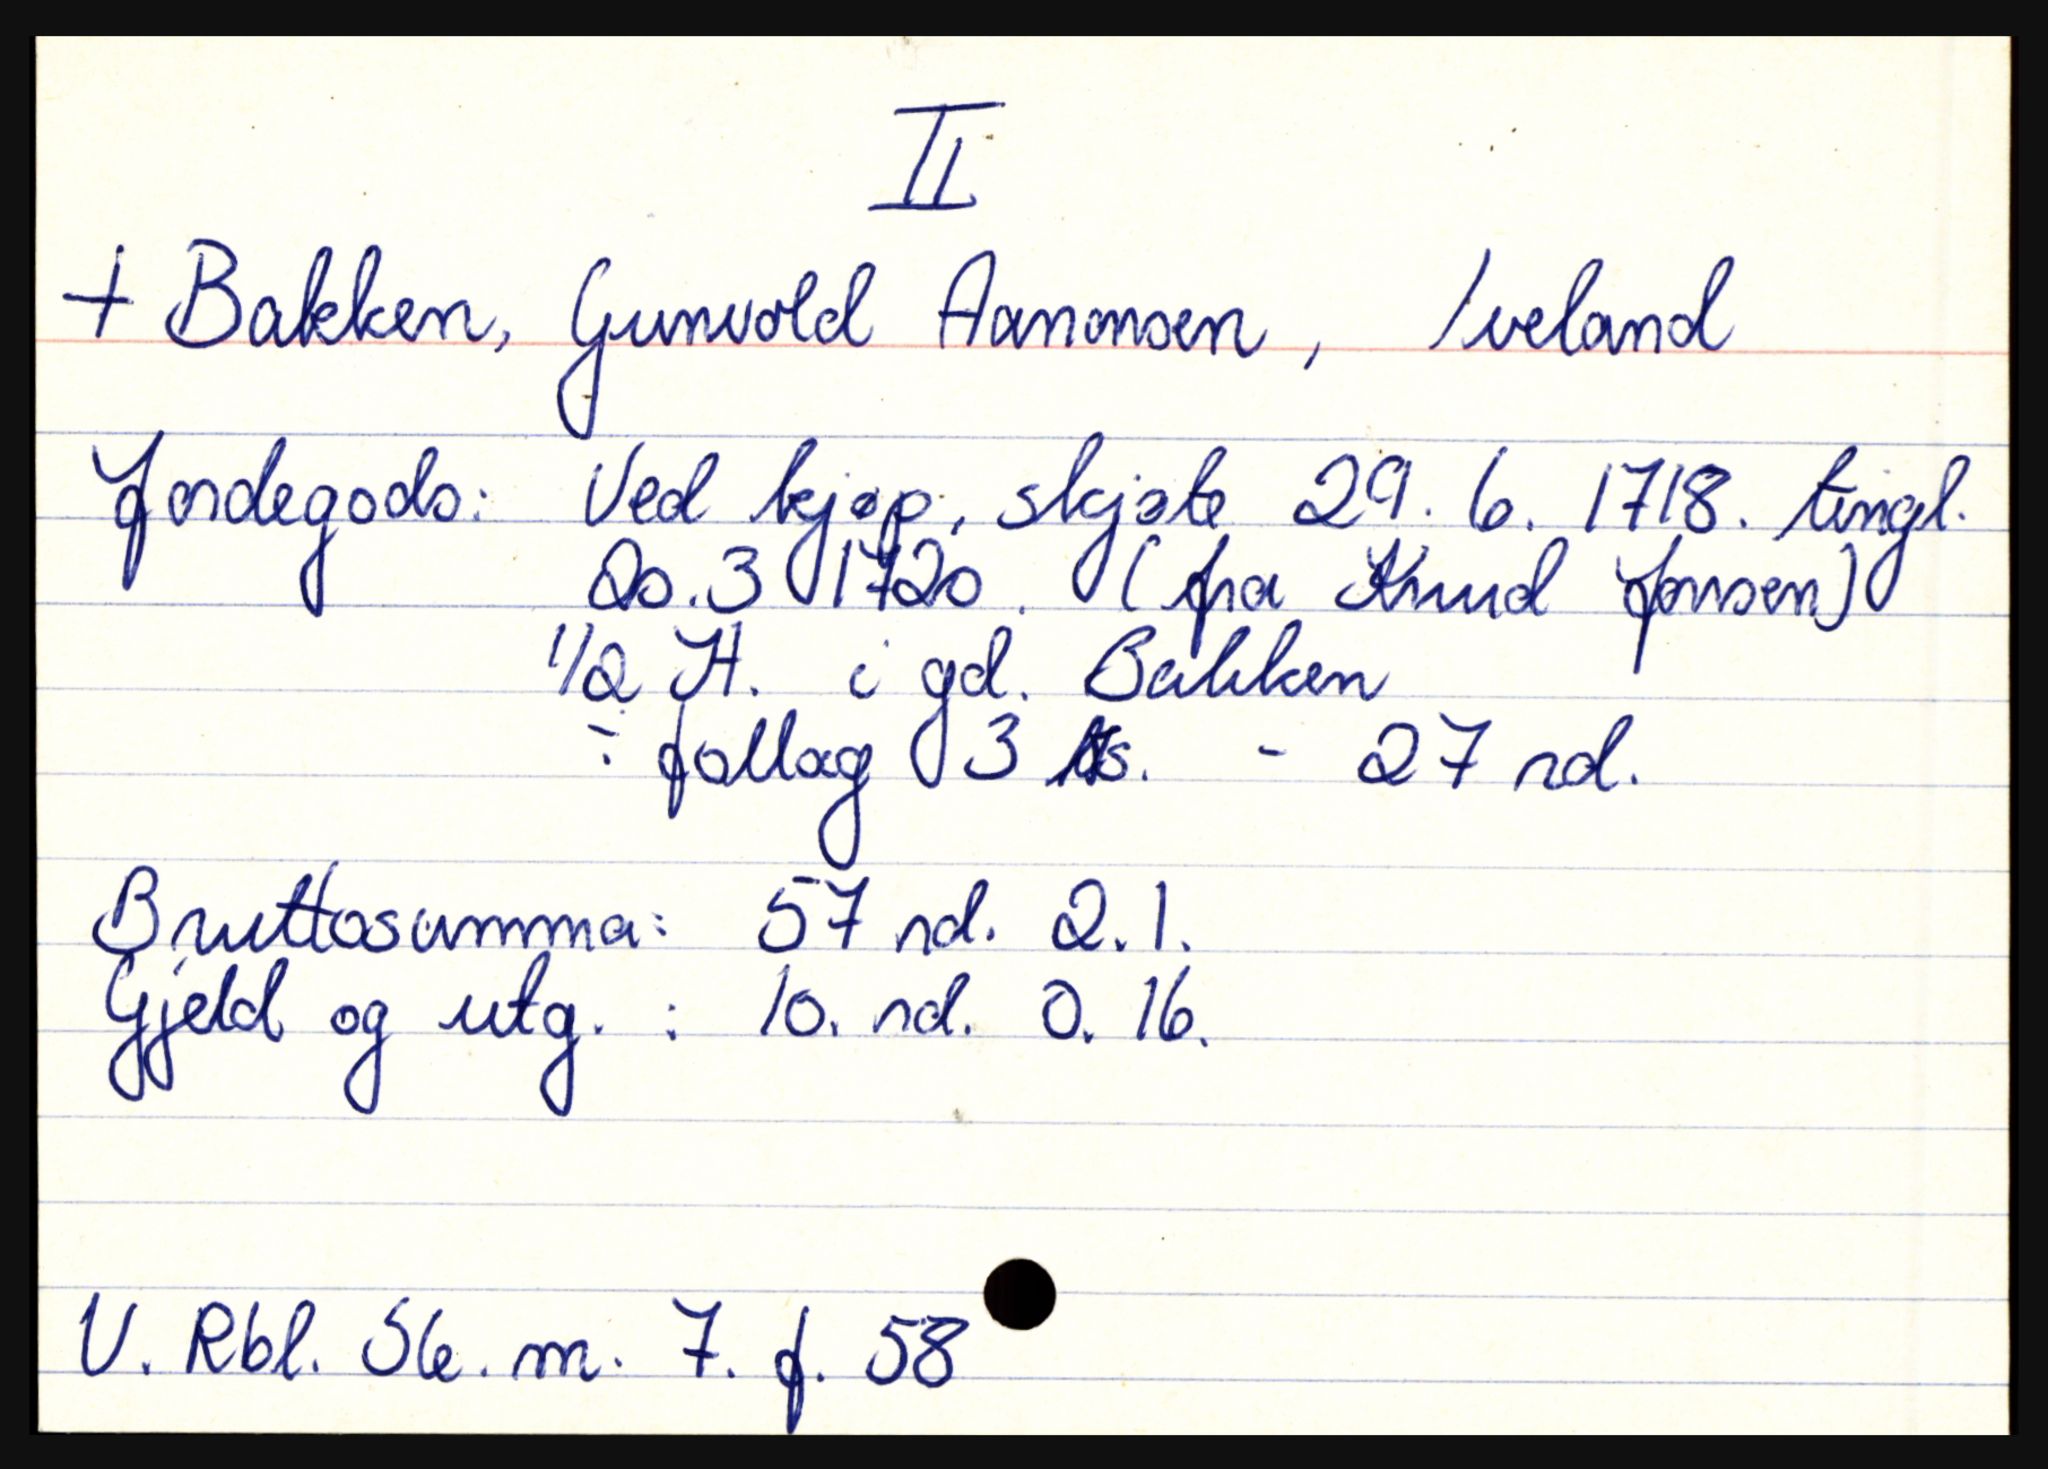 II
+ Bakken, Gunvold Aanonsen, Iveland
Jordegods: Ved kjøp, skjøte 29. 6. 1718. tingl.
20. 3 1720. (fra Knud Jonsen)
1/2 H. i gd. Bakken
÷ follag 3 ks. - 27 rd.
Bruttosumma: 57 rd. 2. 1.
Gjeld og utg. : 10. rd. 0. 16.
V. Rbl. Sk. m. 7. f. 58